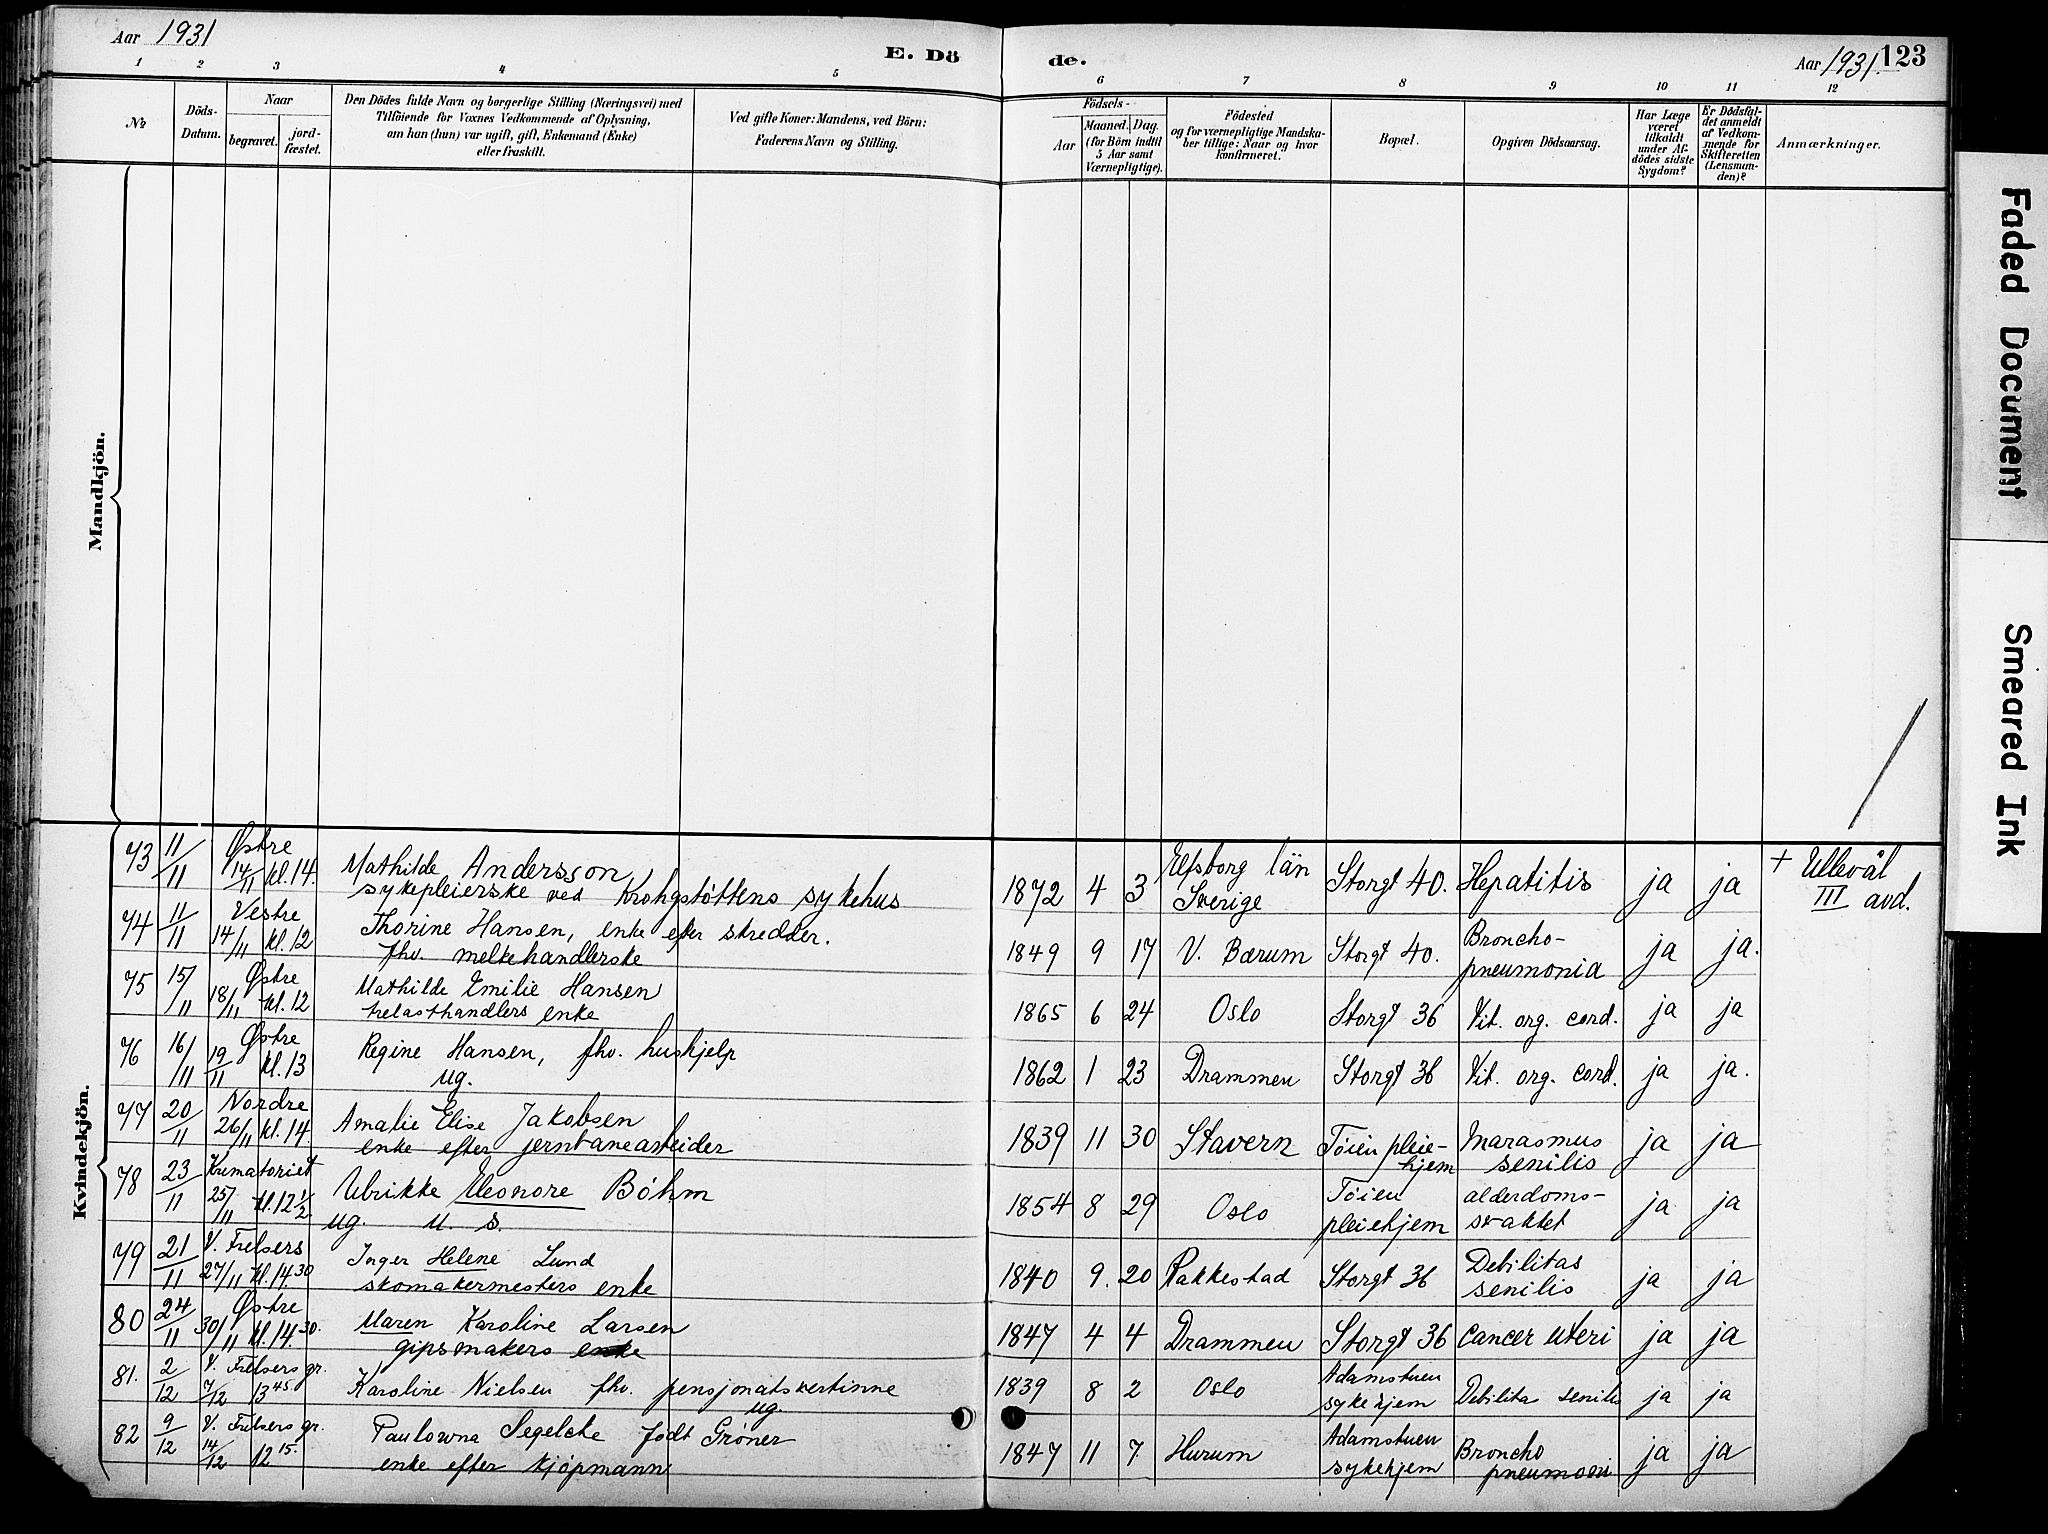 Aar 1931
E. Dö
de.
Aar 1931. 123
1 2 3 4 5 6 7 8 9 10 11 12
No
Döds-
Datum.
Naar
begravet.
jord-
fæstet.
Den Dödes fulde Navn og borgerlige Stilling (Næringsvei) med
Tilföiende for Voxnes Vedkommende af Oplysning,
om han (hun) var ugift, gift, Enkemand (Enke)
eller fraskilt.
Ved gifte Koner: Mandens, ved Börn:
Faderens Navn og Stilling.
Födsels-
Aar
Maaned. Dag.
(for Börn indtil
5 Aar samt
Værnepligtige).
Födested
og for værnepligtige Mandska-
ber tillige: Naar og hvor
konfirmeret.
Bopæl.
Opgiven Dödsaarsag.
Har Læge
været
tilkaldt
under Af-
dödes sidste
Sygdom?
Er Dödsfal-
det anmeldt
af Vedkom-
mende for
Skifteretten
(Lensman-
den)?
Anmærkninger.
Mandkjön.
Kvindekjön.
73 11/11 Østre 14/11 kl. 14. Mathilde Andersson, 1872 4 3 Elfsborg län Storgt 40. Hepatitis ja ja + Ullevål
sykepleierske ved Krohgstøttens sykehus Sverige III avd.
74 11/11 Vestre 14/11 kl. 12 Thorine Hansen, enke efter skredder. 1849 9 17 V. Bærum Storgt 40. Broncho- ja ja.
fhv. melkehandlerske pneumonia
75 15/11 Østre 18/11 kl. 12 Mathilde Emilie Hansen 1865 6 24 Oslo Storgt 36 Vit. org. cord. ja ja
trelasthandlers enke
76 16/11 Østre 19/11 kl. 13 Regine Hansen, fhv. huskjelp 1862 1 23 Drammen Storgt 36 Vit. org. cord. ja ja.
ug.
77 20/11 Nordre 26/11 kl. 14. Amalie Elise Jakobsen 1839 11 30 Stavern Tøien pleie- Marasmus ja ja
enke efter jernbanearbeider hjem senilis
78 23/11 Krematoriet 25/11 kl. 12 1/2 Ulrikke Eleonore Bøhm 1854 8 29 Oslo Tøien alderdoms- ja ja
ug. u. s. pleiehjem svakhet
79 21/11 V. Frelsers 27/11 kl. 14.30 Inger Helene Lund 1840 9. 20 Rakkestad Storgt 36 Debilitas ja ja
skomakermesters enke senilis
80 24/11 Østre 30/11 kl. 14.30. Maren Karoline Larsen 1847 4 4 Drammen Storgt 36 Cancer uteri ja ja
gipsmakers enke
81. 2/12 V. Frelsers gr. 7/12 13 45. Karoline Nielsen fhv. pensjonatsvertinne 1839 8 2 Oslo Adamstuen Debilitas senilis ja ja
ug. sykehjem
82 9/12 V. Frelsers gr. 14/12 12 15. Paulowna Segelcke født Grøner 1847 11 7. Hurum Adamstuen Broncho ja ja
enke efter kjøpmann sykehjem pneumoni
Faded Document
Smeared Ink